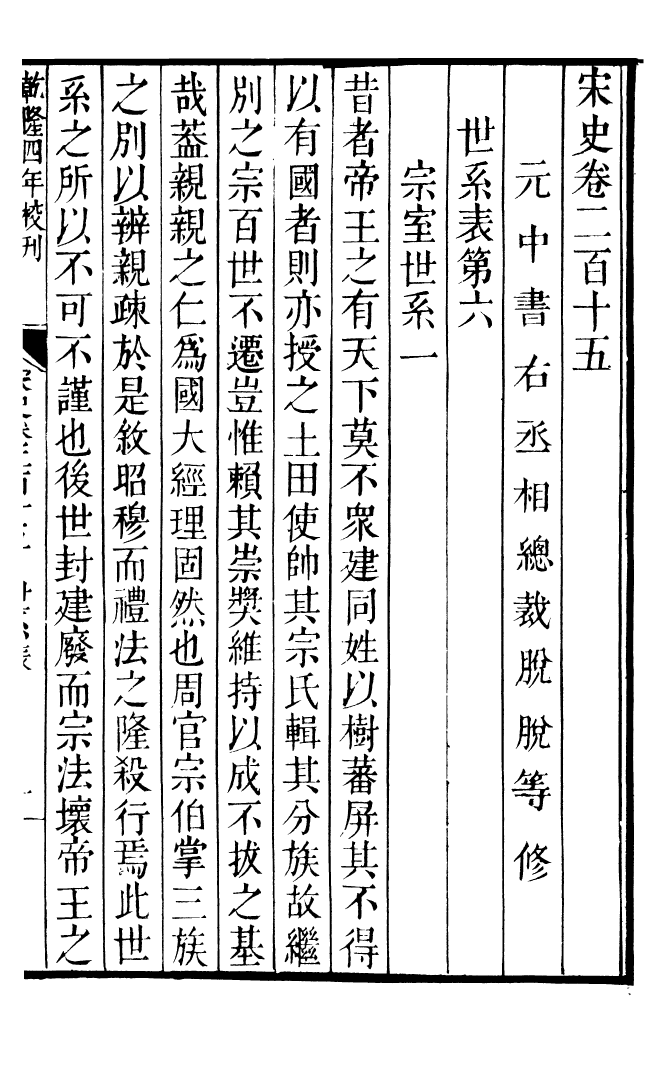 宋史卷二百十五
元中書右丞相總裁脫脫等修
世系表第六
宗室世系一
昔者帝王之有天下莫不衆建同姓以樹蕃屏其不得
以有國者則亦授之土田使帥其宗氏輯其分族故繼
別之宗百世不遷豈惟賴其崇奬維持以成不拔之基
哉葢親親之仁爲國大經理固然也周官宗伯掌三族
之別以辨親疎於是敘昭穆而禮法之隆殺行焉此世
系之所以不可不謹也後世封建廢而宗法壞帝王之
乾隆四年校刊